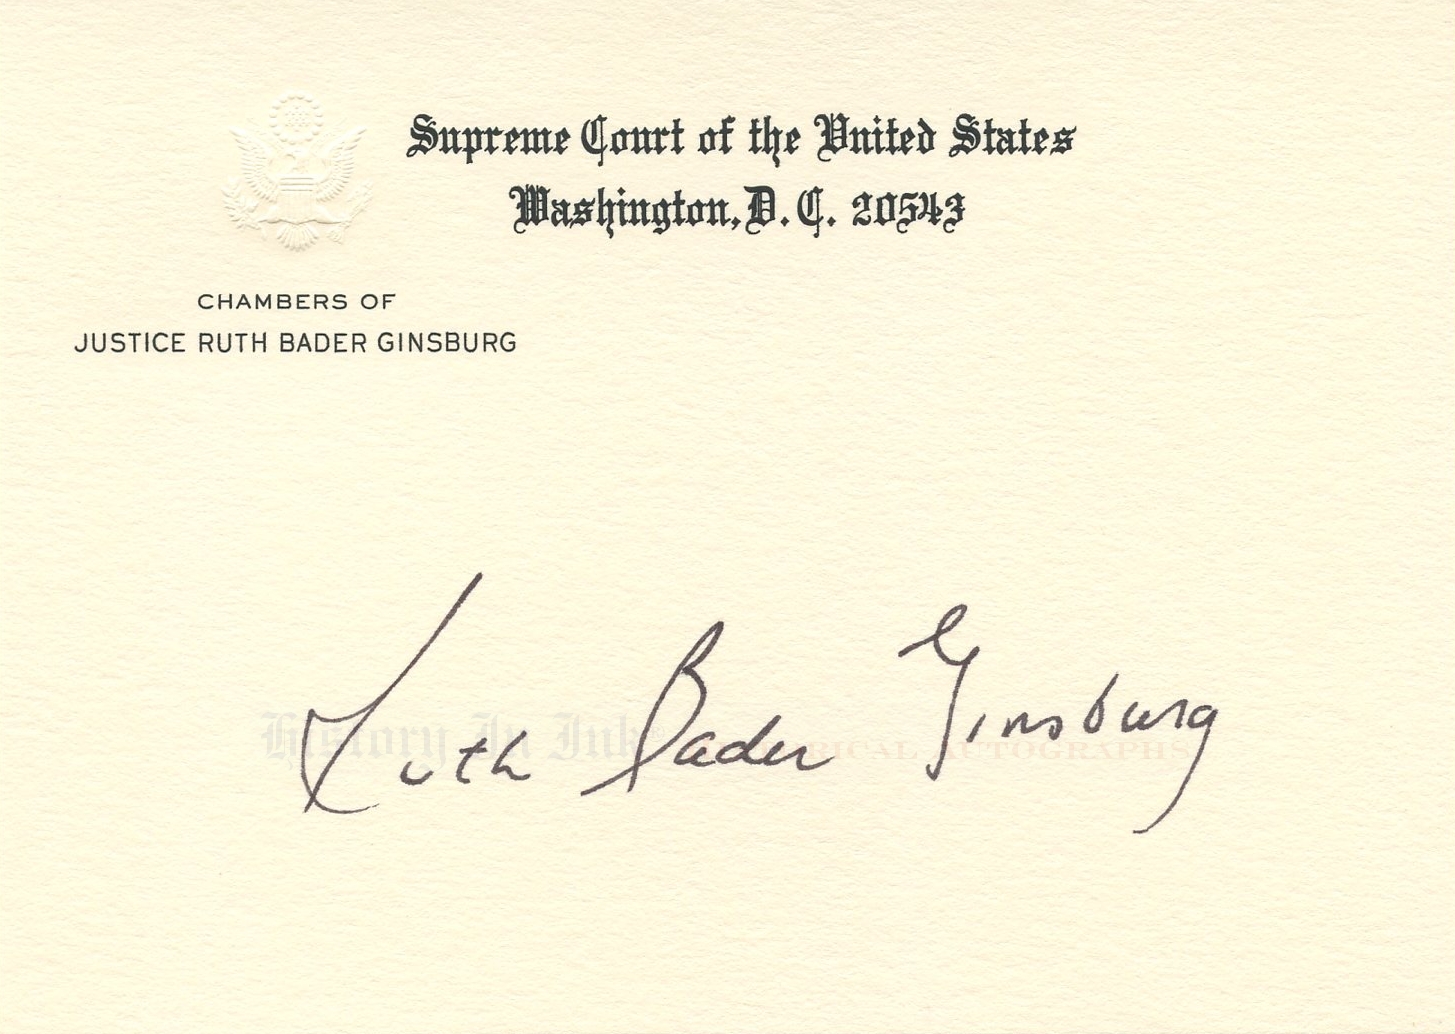 Supreme Court of the United States
Washington, D. C. 20543
CHAMBERS OF
JUSTICE RUTH BADER GINSBURG
Ruth Bader Ginsburg
History In Ink® HISTORICAL AUTOGRAPHS